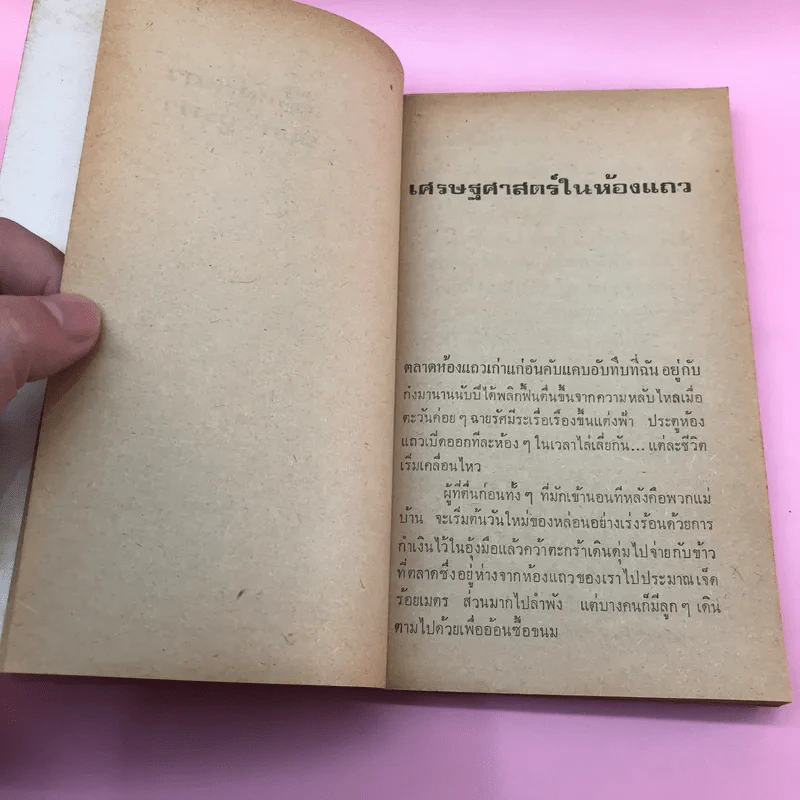 เศรษฐศาสตร์ในห้องแถว
ตลาดห้องแถวเก่าแก่อันคับแคบอับทึบที่ฉัน อยู่กับ
ก๋งมานานนับปีได้พลิกฟื้นตื่นขึ้นจากความหลับใหลเมื่อ
ตะวันค่อย ๆ ฉายรัศมีระเรื่อเรืองขึ้นแต่งฟ้า ประตูห้อง
แถวเปิดออกทีละห้อง ๆ ในเวลาไล่เลี่ยกัน... แต่ละชีวิต
เริ่มเคลื่อนไหว
ผู้ที่ตื่นก่อนทั้ง ๆ ที่มักเข้านอนทีหลังคือพวกแม่
บ้าน จะเริ่มต้นวันใหม่ของหล่อนอย่างเร่งร้อนด้วยการ
กำเงินไว้ในอุ้งมือแล้วคว้าตะกร้าเดินดุ่มไปจ่ายกับข้าว
ที่ตลาดซึ่งอยู่ห่างจากห้องแถวของเราไปประมาณเจ็ด
ร้อยเมตร ส่วนมากไปลำพัง แต่บางคนก็มีลูก ๆ เดิน
ตามไปด้วยเพื่ออ้อนซื้อขนม